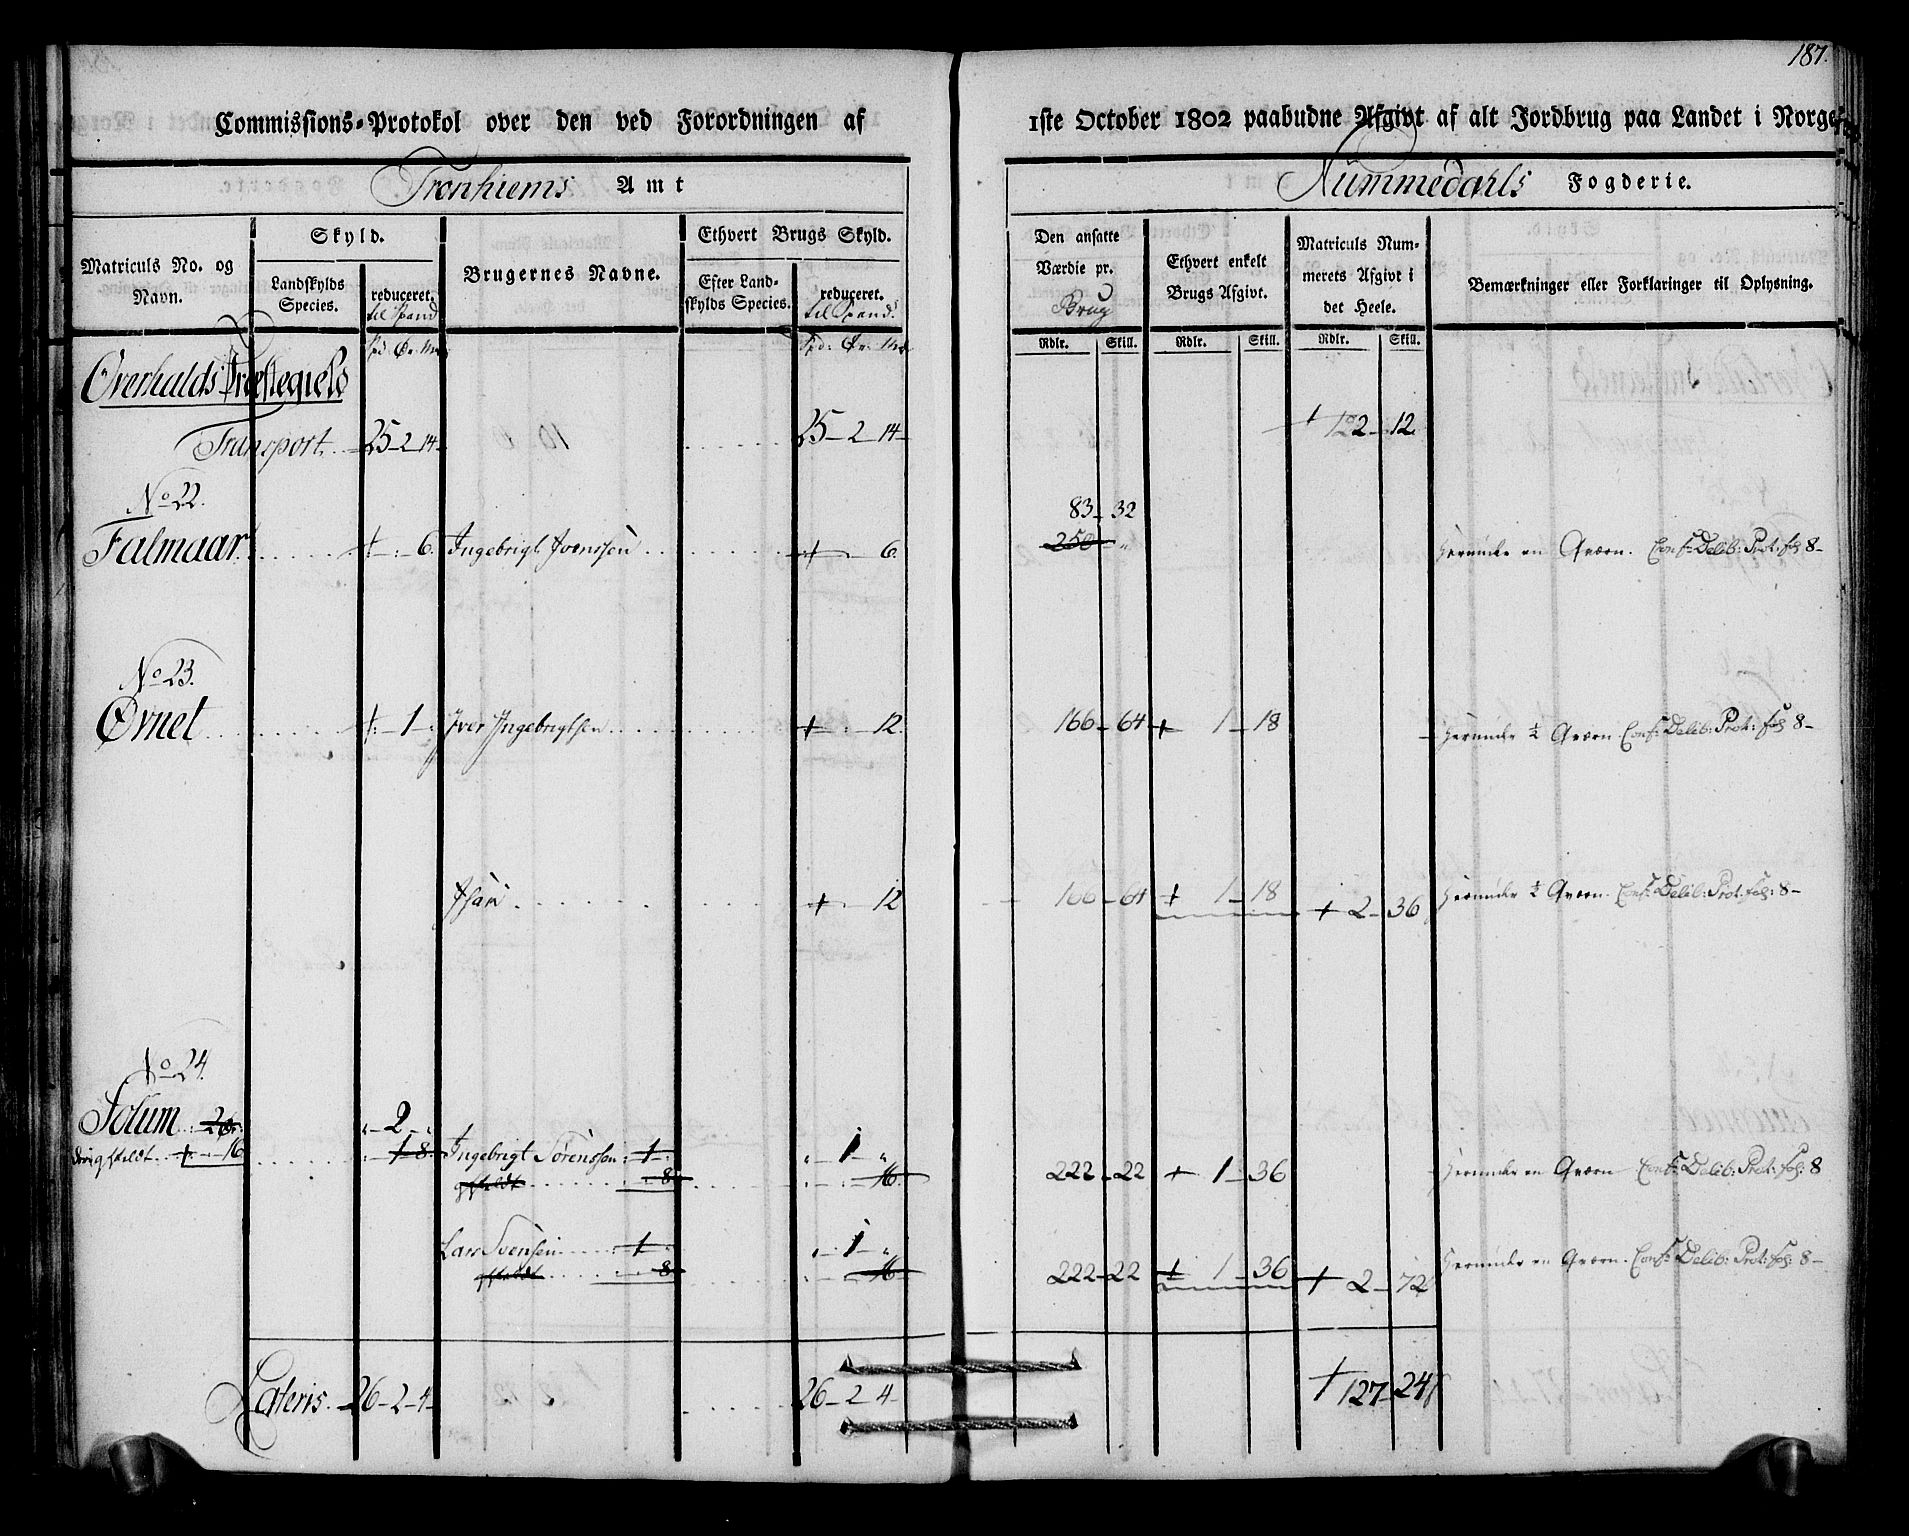 187.
Commissions-Protokol over den ved Forordningen af 1ste October 1802 paabudne Afgivt af alt Jordbrug paa Landet i Norge
Tronhiems Amt
Nummedahls Fogderie.
Matriculs No. og Navn.
Skyld.
Landskylds Species.
reduceret. til Spand
Brugernes Navne.
Ethvert Brugs Skyld.
Efter Landskylds Species.
reduceret. til Spand.
Den ansatte Værdie pr. Brug
Ethvert enkelt Brugs Afgivt.
Matriculs Nummerets Afgivt i det Heele.
Bemærkninger eller Forklaringer til Oplysning.
Rdlr. Skill. Rdlr. Skill. Rdlr. Skill.
Overhalds Præstegield
Transport 25 - 2 - 14 25 - 2 - 14 122 - 12
No 22.
83 - 32
Falmaar 6 Ingebrigt 6 250 - " Herunder en Qværn. Conf: Delib: Prot: fol 8 -
No 23.
Ørnet 1 Iver Ingebrigtsen 12. 166 - 64 1 - 18 Herunder ½ Qværn Conf: Delib: Prot: fol 8 -
12 166 - 64 1 - 18 2 - 36 Herunder ½ Qværn. Conf: Delib: Prot: fol: 8 -
No 24.
Solum 2 2
16 1 - 8 Ingebrigt Sörenssen 1 1 222 - 22 1 - 36 Herunder en Qværn Conf: Delib: Prot: fol: 8
8 16
Lars Svensen 1 1 222 - 22 1 - 36 2 - 72 Herunder en Qværn. Conf: Delib: Prot: fol: 8 -
8 16
Lateris 26 - 2 - 4 26 - 2 - 4 127 - 24